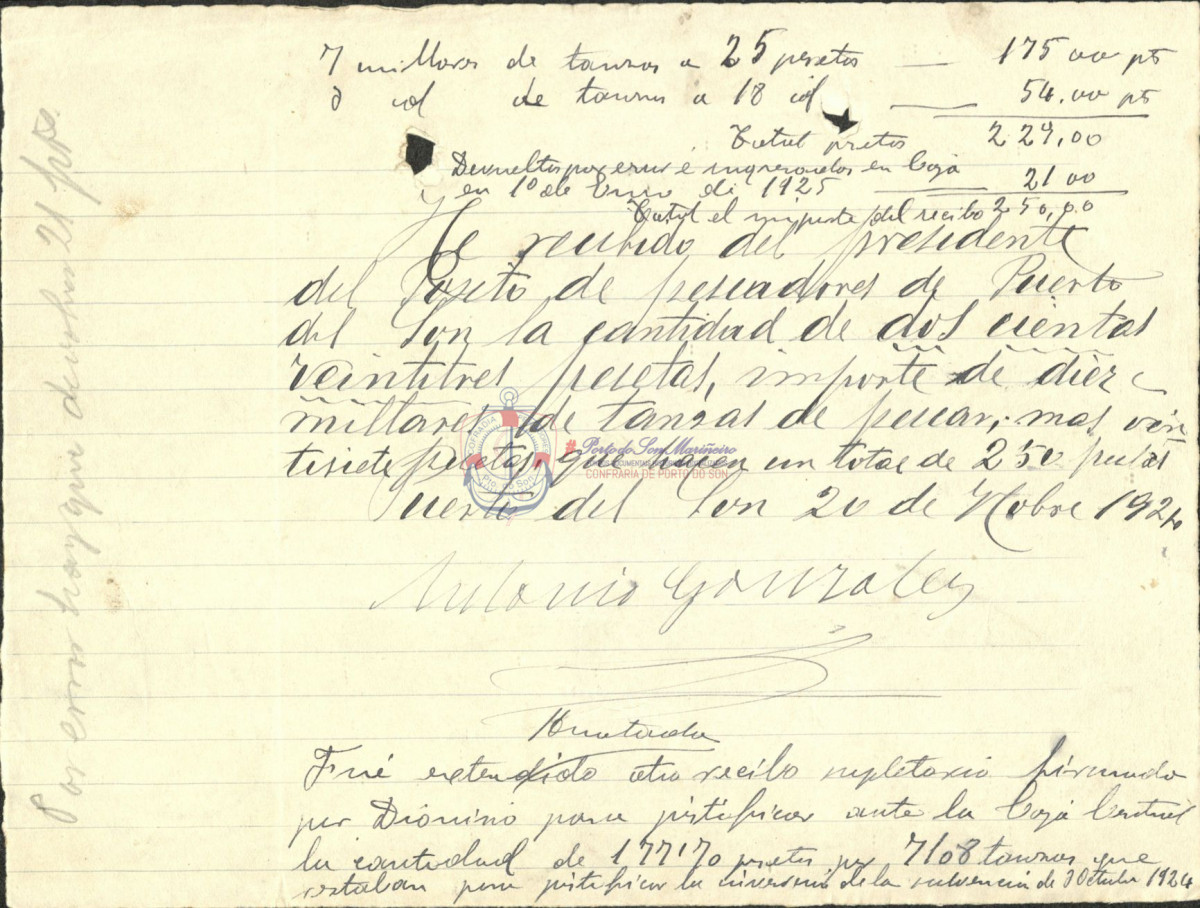 7 millares de tanzas a 25 pesetas — 175,00 pts
3 id de tanzas a 18 id — 54,00 pts
Total pesetas 229,00
Devueltas por error é ingresadas en Caja
en 1º de Enero de 1925 — 21 00
Total el importe del recibo 250,00
He recibido del presidente
del Posito de pescadores de Puerto
del Son la cantidad de dos cientas
veintitres pesetas, importe de diez
millares de tanzas de pescar; mas vein
tisiete pesetas, que hacen un total de 250 pesetas
Puerto del Son 20 de Nobre 1924
Antonio Gonzalez
Fué extendido otro recibo supletorio firmado
por Dionisio para justificar ante la Caja Central
la cantidad de 177'70 pesetas por 7108 tanzas que
restaban para justificar la inversión de la subvención de 3 Octubre 1924
Por error hay que devolver 21 pts.
COFRADIA
Pto. do Son
#Porto do Son Mariñeiro
CONFRARIA DE PORTO DO SON